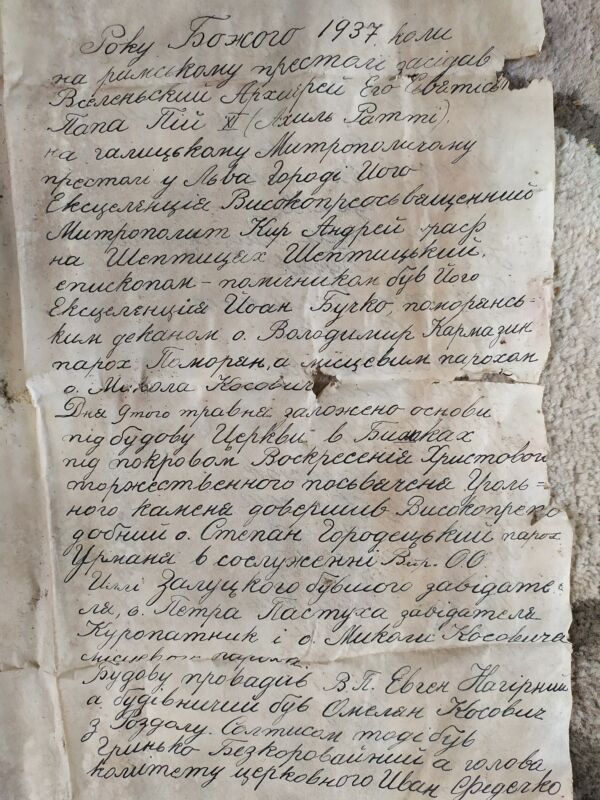 Року Божого 1937, коли
на римському престолі засідав
Вселеньский Архиєрей Его Святість
Папа Пій XI (Ахиль Ратті),
на галицькому Митрополичому
престолі у Льва Городі Його
Ексцеленція Високопреосьвященний
Митрополит Кир Андрей граф
на Шептицях Шептицький,
епископом-помічником був Його
Ексцеленція Йоан Бучко, поморянсь-
ким деканом о. Володимир Кармазин
парох Поморян, а місцевим парохом
о. Микола Косович
Дня 9того травня заложено основи
під будову Церкви в Бишках
під покровом Воскресенія Христового
торжественного посьвяченя Уголь=
ного каменя довершив Високопрепо
добний о. Степан Городецький парох
Урманя в сослуженні Впр. ОО
Іллі Залуцкого бувшого завідате-
ля, о. Петра Пастуха завідателя
Куропатник і о. Миколи Косовича
місцевого пароха.
Будову провадив В.П. Евген Нагірний
а будівничий був Омелян Косович
з Роздолу. Солтисом тоді був
Гринько Безкоровайний а голова
комітету церковного Иван Федечко.